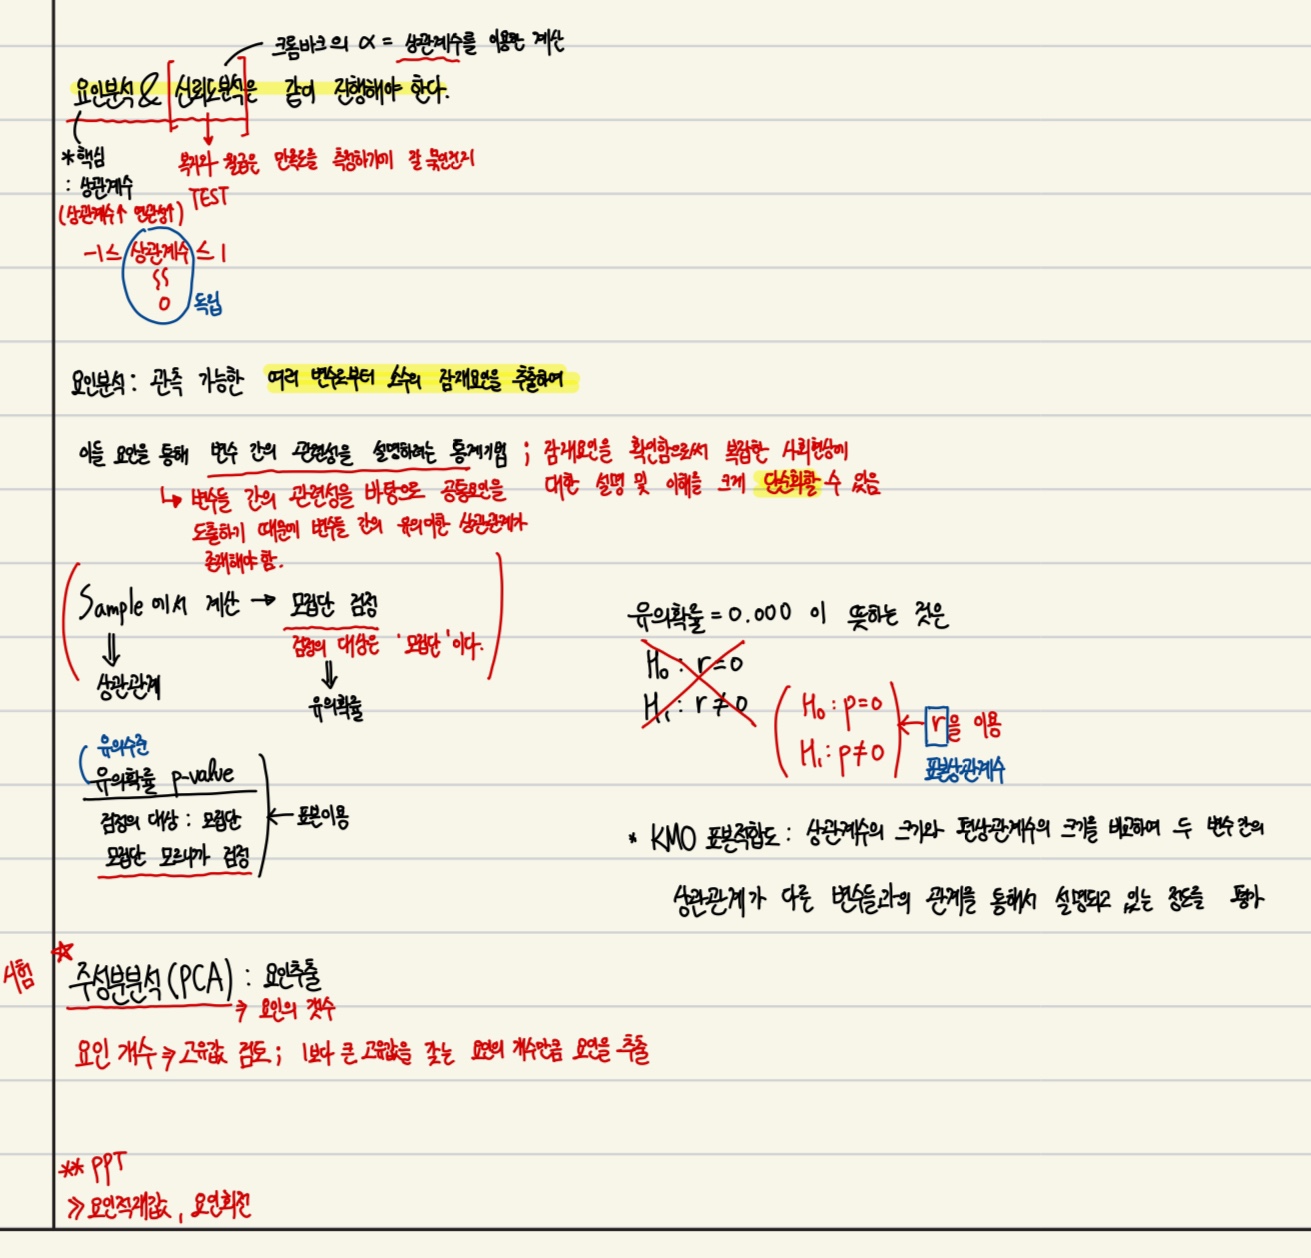 크롬바크의 α = 상관계수를 이용한 계산
요인분석 & [신뢰도분석]은 같이 진행해야 한다.
*핵심
: 상관계수
(상관계수↑ 연관성↑)
복지와 월급은 만족도를 측정하기에 잘 묶였는지
TEST
-1≤ 상관계수 ≤ 1
0 독립
요인분석 : 관측 가능한 여러 변수로부터 소수의 잠재요인을 추출하여
이들 요인을 통해 변수 간의 관련성을 설명하려는 통계기법 ; 잠재요인을 확인함으로써 복잡한 사회현상에
대한 설명 및 이해를 크게 단순화할 수 있음
↳ 변수들 간의 관련성을 바탕으로 공통요인을
도출하기 때문에 변수들 간의 유의미한 상관관계가
존재해야 함.
Sample에서 계산 → 모집단 검정
검정의 대상은 '모집단'이다.
⇓ ⇓
상관관계 유의확률
유의확률 = 0.000 이 뜻하는 것은
H₀ : r=0
H₁ : r≠0
H₀ : p=0
H₁ : p≠0
← r을 이용
표본상관계수
유의수준
유의확률 p-value
검정의 대상 : 모집단
모집단 모르니까 검정
← 표본이용
* KMO 표본적합도 : 상관계수의 크기와 편상관계수의 크기를 비교하여 두 변수간의
상관관계가 다른 변수들과의 관계를 통해서 설명되고 있는 정도를 평가
시험 ☆
주성분분석(PCA) : 요인추출
⇒ 요인의 갯수
요인 개수 ⇒ 고유값 검토 ; 1보다 큰 고유값을 갖는 요인의 개수만큼 요인을 추출
** PPT
≫ 요인적재값, 요인회전